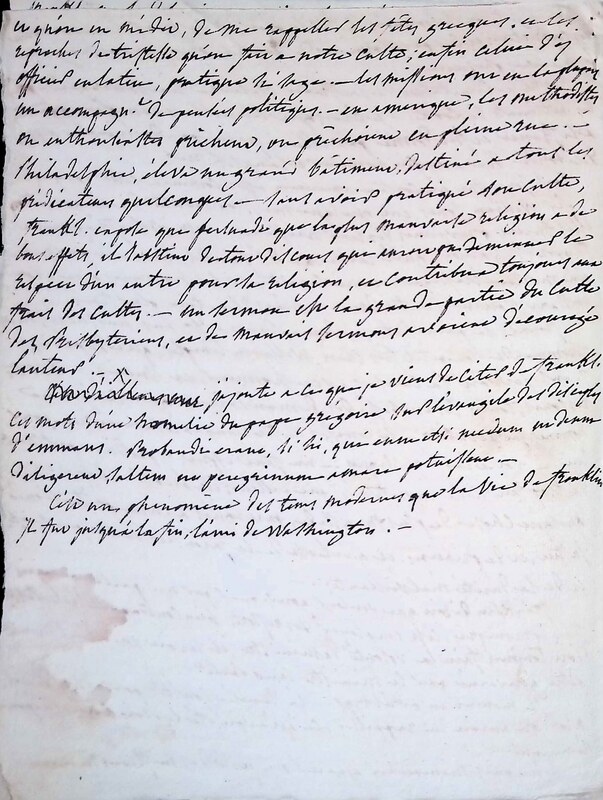 ce qu'on en médit, de me rappeller les fêtes grecques, et les
reproches de tristesse qu'on fait a notre culte; enfin celui d'es
offices en latin, pratique si sage. — les missions ont en la plupart
un accompagn.t de pensées politiques. — en amérique, les méthodistes
ou enthousiastes prêchent, ou prêchoient en pleine rue. —
Philadelphie, éleva un grand bâtiment, destiné a tous les
prédicateurs quelconques — sans avoir pratiqué son culte,
frankl. expose que persuadé que la plus mauvaise religion a de
bons effets, il s'abstint de tout discours qui auroit pu diminuer le
respect d'un autre pour sa religion, et contribua toujours aux
frais des cultes. — un sermon est la grande partie du culte
des Presbyteriens, et de mauvais sermons avoient découragé
l'auteur.
j'ajoute a ce que je viens de citer de frankl.
ces mots d'une homelie du pape grégoire sur l'evangile des disciples
d'emmaus. Probandi erant, si hi, qui eum etsi necdum ut deum
diligerent, saltem ut peregrinum amare potuissent. —
C'est un phenomène des tems modernes que la vie de franklin
il fut jusqu'à la fin, l'ami de Washington. —